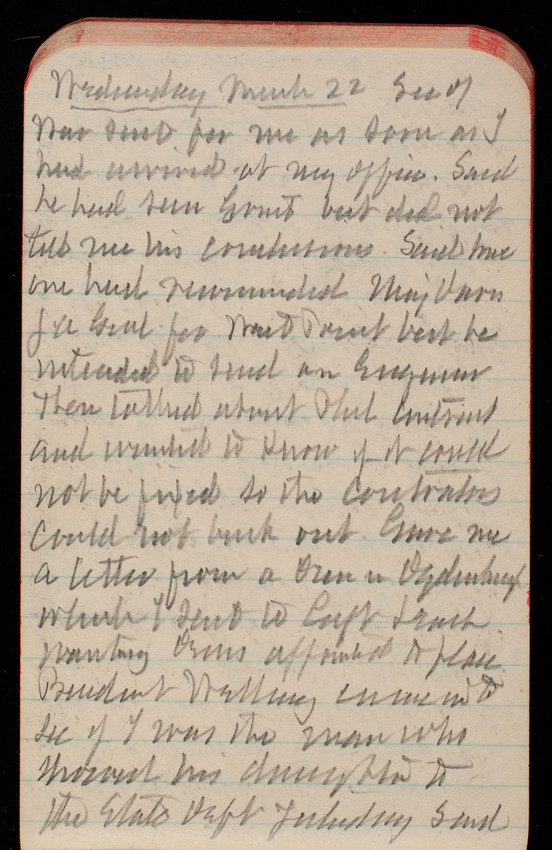 Wednesday March 22 Sec of
War sent for me as soon as I
had arrived at my office. Said
he had seen Grant but did not
tell me his conclusions. Said some
one had recommended Maj Davis
J a Genl for West Point but he
intended to send an Engineer
Then talked about contract
and wanted to know if it could
not be fixed so the contractors
could not back out. Gave me
a letter from a in Ogdensburg
which I sent to Capt
wanting appointed to place
President Walling came in to
see if I was the man who
showed his daughter to
the State Dept yesterday Said